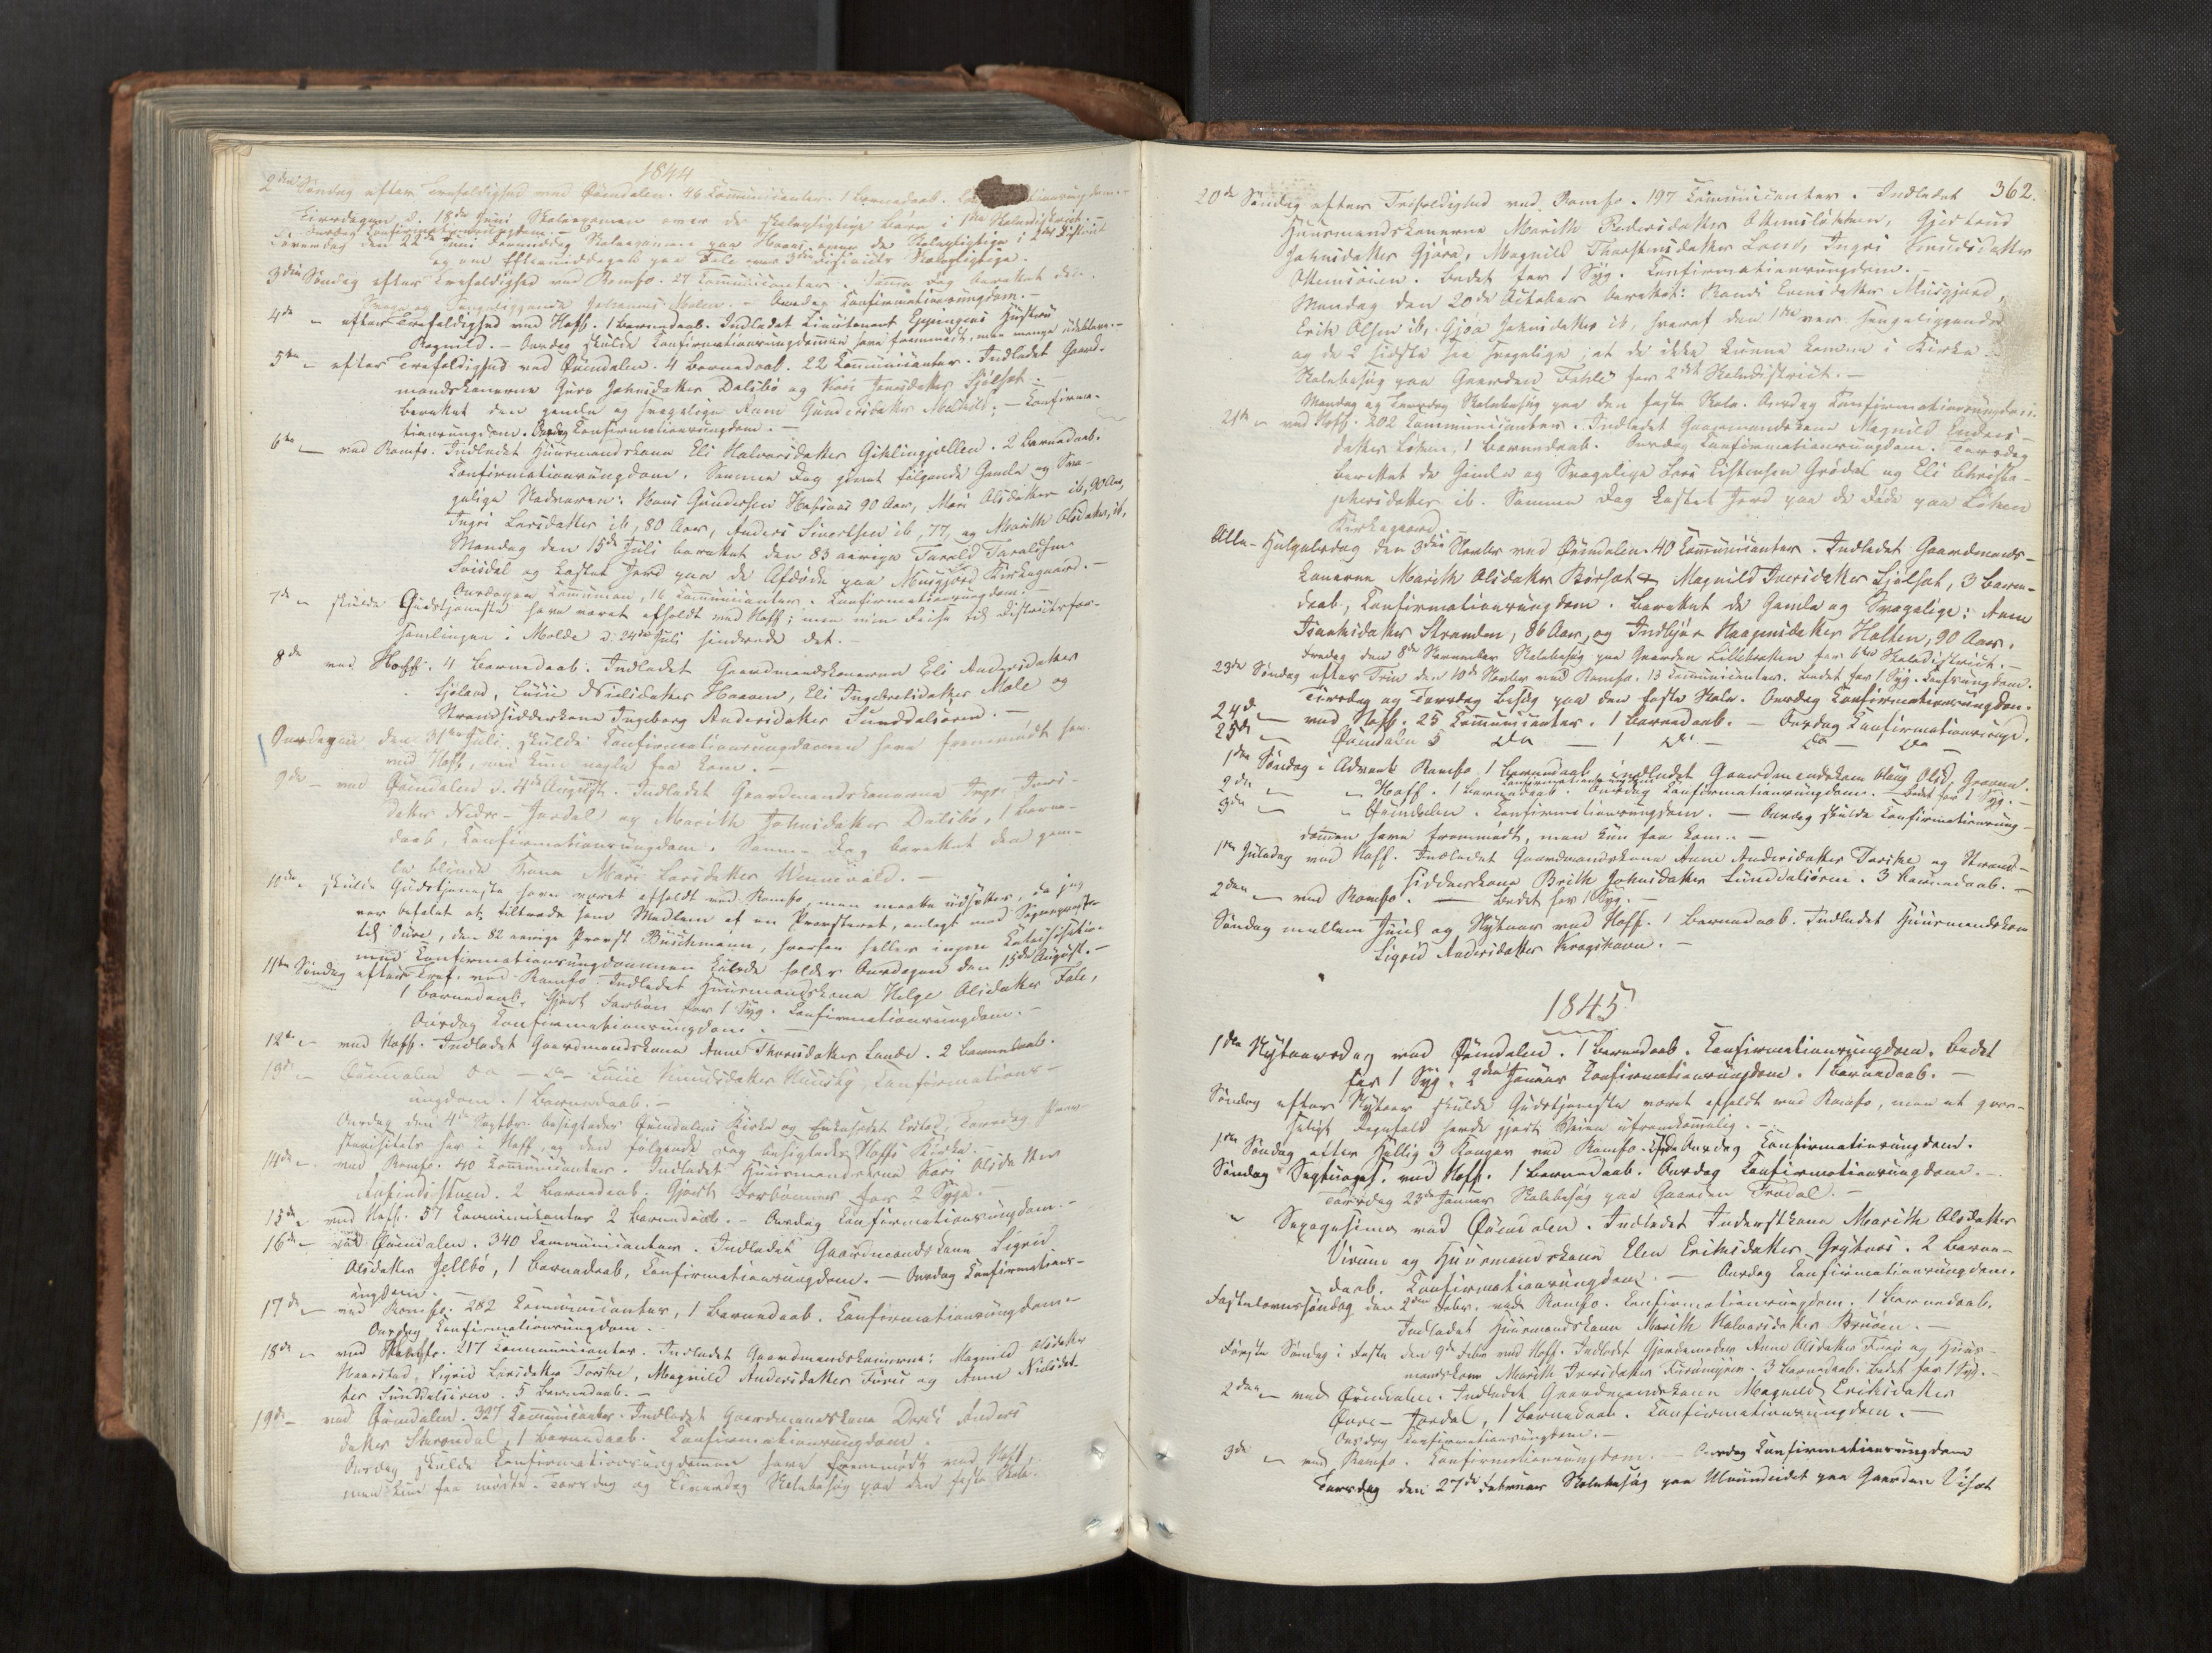 1844
2den Søndag efter Trefoldighed ved Øxendalen. 46 Communicanter. 1 Barnedaab.
Tirsdagen d. 18de Juni Skoleexamen over de skolepligtige Børn i 1ste Skoledistrict.
Onsdag Confirmationsungdom.
Løverdag den 22de Juni Formiddag Skoleexamen paa Hoaas over de Skolepligtige i 2det District
og om Eftermiddagen paa Fale over 3die Districts Skolepligtige.
3die Søndag efter Trefoldighed ved Romfo. 27 Communicanter. Samme Dag berettet den
svage og sengeliggende Johannes. - Onsdag Confirmationsungdom. -
4de - efter Trefoldighed ved Hoff. 1 Barnedaab. Indledet Lieutenant Eppingens Hustru
Magnild. - Onsdag skulde Confirmationsungdommen have fremmødt, men mange udebleve. -
5te - efter Trefoldighed ved Øxendalen. 4 Barnedaab. 22 Communicanter. Indledet Gaard-
mandskonerne Guro Johnsdatter Dalsbø og Kari Jonsdatter Sjølset.
Berettet den gamle og svagelige Anne Gundersdatter. - Confirma-
tionsungdom. Onsdag Confirmationsungdom. -
6te - ved Romfo. Indledet Huusmandskone Eli Halvorsdatter Gikling. 2 Barnedaab.
Confirmationsungdom. Samme Dag givet følgende Gamle og Sva-
gelige Nadveren: Hans Gundersen 90 Aar, Mari Olsdatter ib, 90 Aar,
Ingri Larsdatter ib, 80 Aar, Anders Sivertsen ib, 77, og Marith Olsdatter, ib.
Mandag den 15de Juli berettet den 83 aarige Tarald Taraldsen
og kastet Jord paa de Afdøde paa Musgjerd Kirkegaard. -
Onsdagen Communion, 16 Communicanter. Confirmationsungdom. -
7de - skulde Gudstjeneste have været afholdt ved Hoff; men min Reise til Districtsfor-
samlingen i Molde d. 24de Juli hindrede det. -
8de ved Hoff. 4 Barnedaab. Indledet Gaardmandskonerne Eli Andersdatter
Sjøland, Lussie Nielsdatter Hoaven, Eli Ingebretsdatter Mæle og
Strandsidderkone Ingeborg Andersdatter Sunddalsøren. -
Onsdagen den 31te Juli skulde Confirmationsungdommen have fremmødt her
ved Hoff, men kun nogle faa kom. -
9de - ved Øxendalen d. 4de August. Indledet Gaardmandskonerne Ingri Iver-
datter Nedre-Jordal og Marith Johnsdatter Dalsbø, 1 Barne-
daab, Confirmationsungdom. Samme Dag berettet den gam-
le blinde Kone Mari Larsdatter. -
10de - skulde Gudstjeneste have været afholdt ved Romfo, men maatte udsættes, da jeg
var befalet at tiltræde som Medlem af en Provsteret, anlagt mod Sognepræsten
til Øure, den 82 aarige Provst Buschmann, hvorfor heller ingen Catechisation
med Confirmationsungdommen kunde holdes Onsdagen den 15de August. -
11te Søndag efter Tref. ved Romfo. Indledet Huusmandskone Helge Olsdatter Fale,
1 Barnedaab, gjort Forbøn for 1 Syg. Confirmationsungdom. -
Onsdag Confirmationsungdom. -
12te - ved Hoff. Indledet Gaardmandskone Anne Thoresdatter Lande. 2 Barnedaab.
13de - Øxendalen do - do - Lussie Knudsdatter, Confirmations-
ungdom. 1 Barnedaab. -
Onsdag den 4de Septbr. besigtedes Øxendalens Kirke og Enkesædet, Torsdag Prov-
stevisitats her i Hoff, og den følgende Dag besigtedes Hoffs Kirke. -
14de - ved Romfo. 40 Communicanter. Indledet Huusmandskone Kari Olsdatter
2 Barnedaab. Gjort Forbønner for 2 Syge. -
15de - ved Hoff. 57 Communicanter 2 Barnedaab. - Onsdag Confirmationsungdom. -
16de - ved Øxendalen. 340 Communicanter. Indledet Gaardmandskone Sigrid
Olsdatter Jellbø, 1 Barnedaab, Confirmationsungdom. - Onsdag Confirmations-
ungdom. -
17de - ved Romfo. 282 Communicanter, 1 Barnedaab. Confirmationsungdom. -
Onsdag Confirmationsungdom. -
18de - ved. 217 Communicanter. Indledet Gaardmandskonerne: Magnild Olsdatter
Haarstad, Sigrid Larsdatter Torske, Magnild Andersdatter Furu og Anne Nielsdat-
ter Sunddalsøren. 5 Barnedaab. -
19de - ved Øxendalen. 327 Communicanter. Indledet Gaardmandskone Dordi Anders
datter Storøndal, 1 Barnedaab. Confirmationsungdom.
Onsdag skulde Confirmationsungdommen have fremmødt ved Hoff,
men kun faa mødte. Torsdag og Løverdag Skolebesøg paa den faste Skole.
362.
20de Søndag efter Trefoldighed ved Romfo. 197 Communicanter. Indledet
Huusmandskonerne Marith Pedersdatter, Gjertrud
Johnsdatter Gjøra, Magnild Thorstensdatter, Ingri Knudsdatter
Bedet for 1 Syg. Confirmationsungdom. -
Mandag den 20de October berettet: Randi Evensdatter Musgjerd,
Erik Olsen ib, Gjøa Johnsdatter ib, hvoraf den 1ste var sengeliggende
og de 2 sidste saa svagelige, at de ikke kunne komme i Kirke. -
Skolebesøg paa Gaarden Fahle for 2det Skoledistrict. -
Mandag og Torsdag Skolebesøg paa den faste Skole. Onsdag Confirmationsungdom.
21de - ved Hoff. 202 Communicanter. Indledet Gaarmandskone Magnild Enders-
datter Løken, 1 Barnedaab. Onsdag Confirmationsungdom. Torsdag
berettet de Gamle og Svagelige Lars Eistensen Grødal og Eli Christo-
phersdatter ib. Samme Dag kastet Jord paa de Døde paa Løken
Kirkegaard. -
Alle-Helgensdag den 3die Novbr ved Øxendalen. 40 Communicanter. Indledet Gaardmands-
konerne Marith Olsdatter Børset & Magnild Iversdatter Sjølset, 3 Barne-
daab, Confirmationsungdom. Berettet de Gamle og Svagelige: Anne
Isaaksdatter Stranden, 86 Aar, og Indbjør Haagensdatter Holten, 90 Aar.
Fredag den 8de November Skolebesøg paa Gaarden Lilleboken for 6te Skoledistrict. -
23de Søndag efter Trin den 10de Novbr ved Romfo. 13 Communicanter. Bedet for 1 Syg. Conf.ungdom.
Tirsdag og Torsdag Besøg paa den faste Skole. Onsdag Confirmationsungdom.
24de - ved Hoff. 25 Communicanter. 1 Barnedaab. - Onsdag Confirmationsungd.
25de - Øxendalen 5 do - 1 do - do - do -
1ste Søndag i Advent Romfo 1 Barnedaab indledet Gaardmandskone Olaug Olsd. Grøvne.
Confirmationsungdom
2den - - Hoff. 1 Barnedaab. Onsdag Confirmationsungdom. - Bedet for 1 Syg. -
3die - - Øxendalen. Confirmationsungdom. - Onsdag skulde Confirmationsung-
dommen have fremmødt, men kun faa kom. -
1ste Juledag ved Hoff. Indledet Gaardmandskone Anne Andersdatter Torske og Strand-
sidderkone Brith Johnsdatter Sunddalsøren. 3 Barnedaab. -
2den - ved Romfo. - Bedet for 1 Syg. -
Søndag mellem Juul og Nytaar ved Hoff. 1 Barnedaab. Indledet Huusmandskone
Sigrid Andersdatter Krogshavn. -
1845
1ste Nytaarsdag ved Øxendalen. 1 Barnedaab. Confirmationsungdom. Bedet
for 1 Syg. 2den Januar Confirmationsungdom. 1 Barnedaab. -
Søndag efter Nytaar skulde Gudstjeneste været afholdt ved Romfo, men et over-
haligt Regnfald havde gjort Veien ufremkommelig. -
1ste Søndag efter Hellig 3 Konger ved Romfo. Onsdag Confirmationsungdom.
Søndag Septuages. ved Hoff. 1 Barnedaab. Onsdag Confirmationsungdom.
Torsdag 23de Januar Skolebesøg paa Gaarden Trædal. -
" Sexagesima ved Øxendalen. Indledet Inderstkone Marith Olsdatter
Virum og Huusmandskone Elen Eriksdatter Grytnes. 2 Barne-
daab. Confirmationsungdom. - Onsdag Confirmationsungdom.
Fastelavnssøndag den 2den Febr. ved Romfo. Confirmationsungdom. 1 Barnedaab.
Indledet Huusmandskone Marith Halvorsdatter Bruøen. -
Første Søndag i Faste den 9de Febr ved Hoff. Indledet Gaardmandkone Anne Olsdatter Furu og Huus-
mandskone Marith Iversdatter Furumyren. 3 Barnedaab. Bedet for 1 Syg. -
2den - ved Øxendalen. Indledet Gaardmandskone Magnild Eriksdatter
Øvre-Jordal, 1 Barnedaab. Confirmationsungdom. -
Onsdag Confirmationsungdom. -
3die - ved Romfo. Confirmationsungdom. - Onsdag Confirmationsungdom
Torsdag den 27de Februar Skolebesøg paa Ulvundeidet paa Gaarden Viset